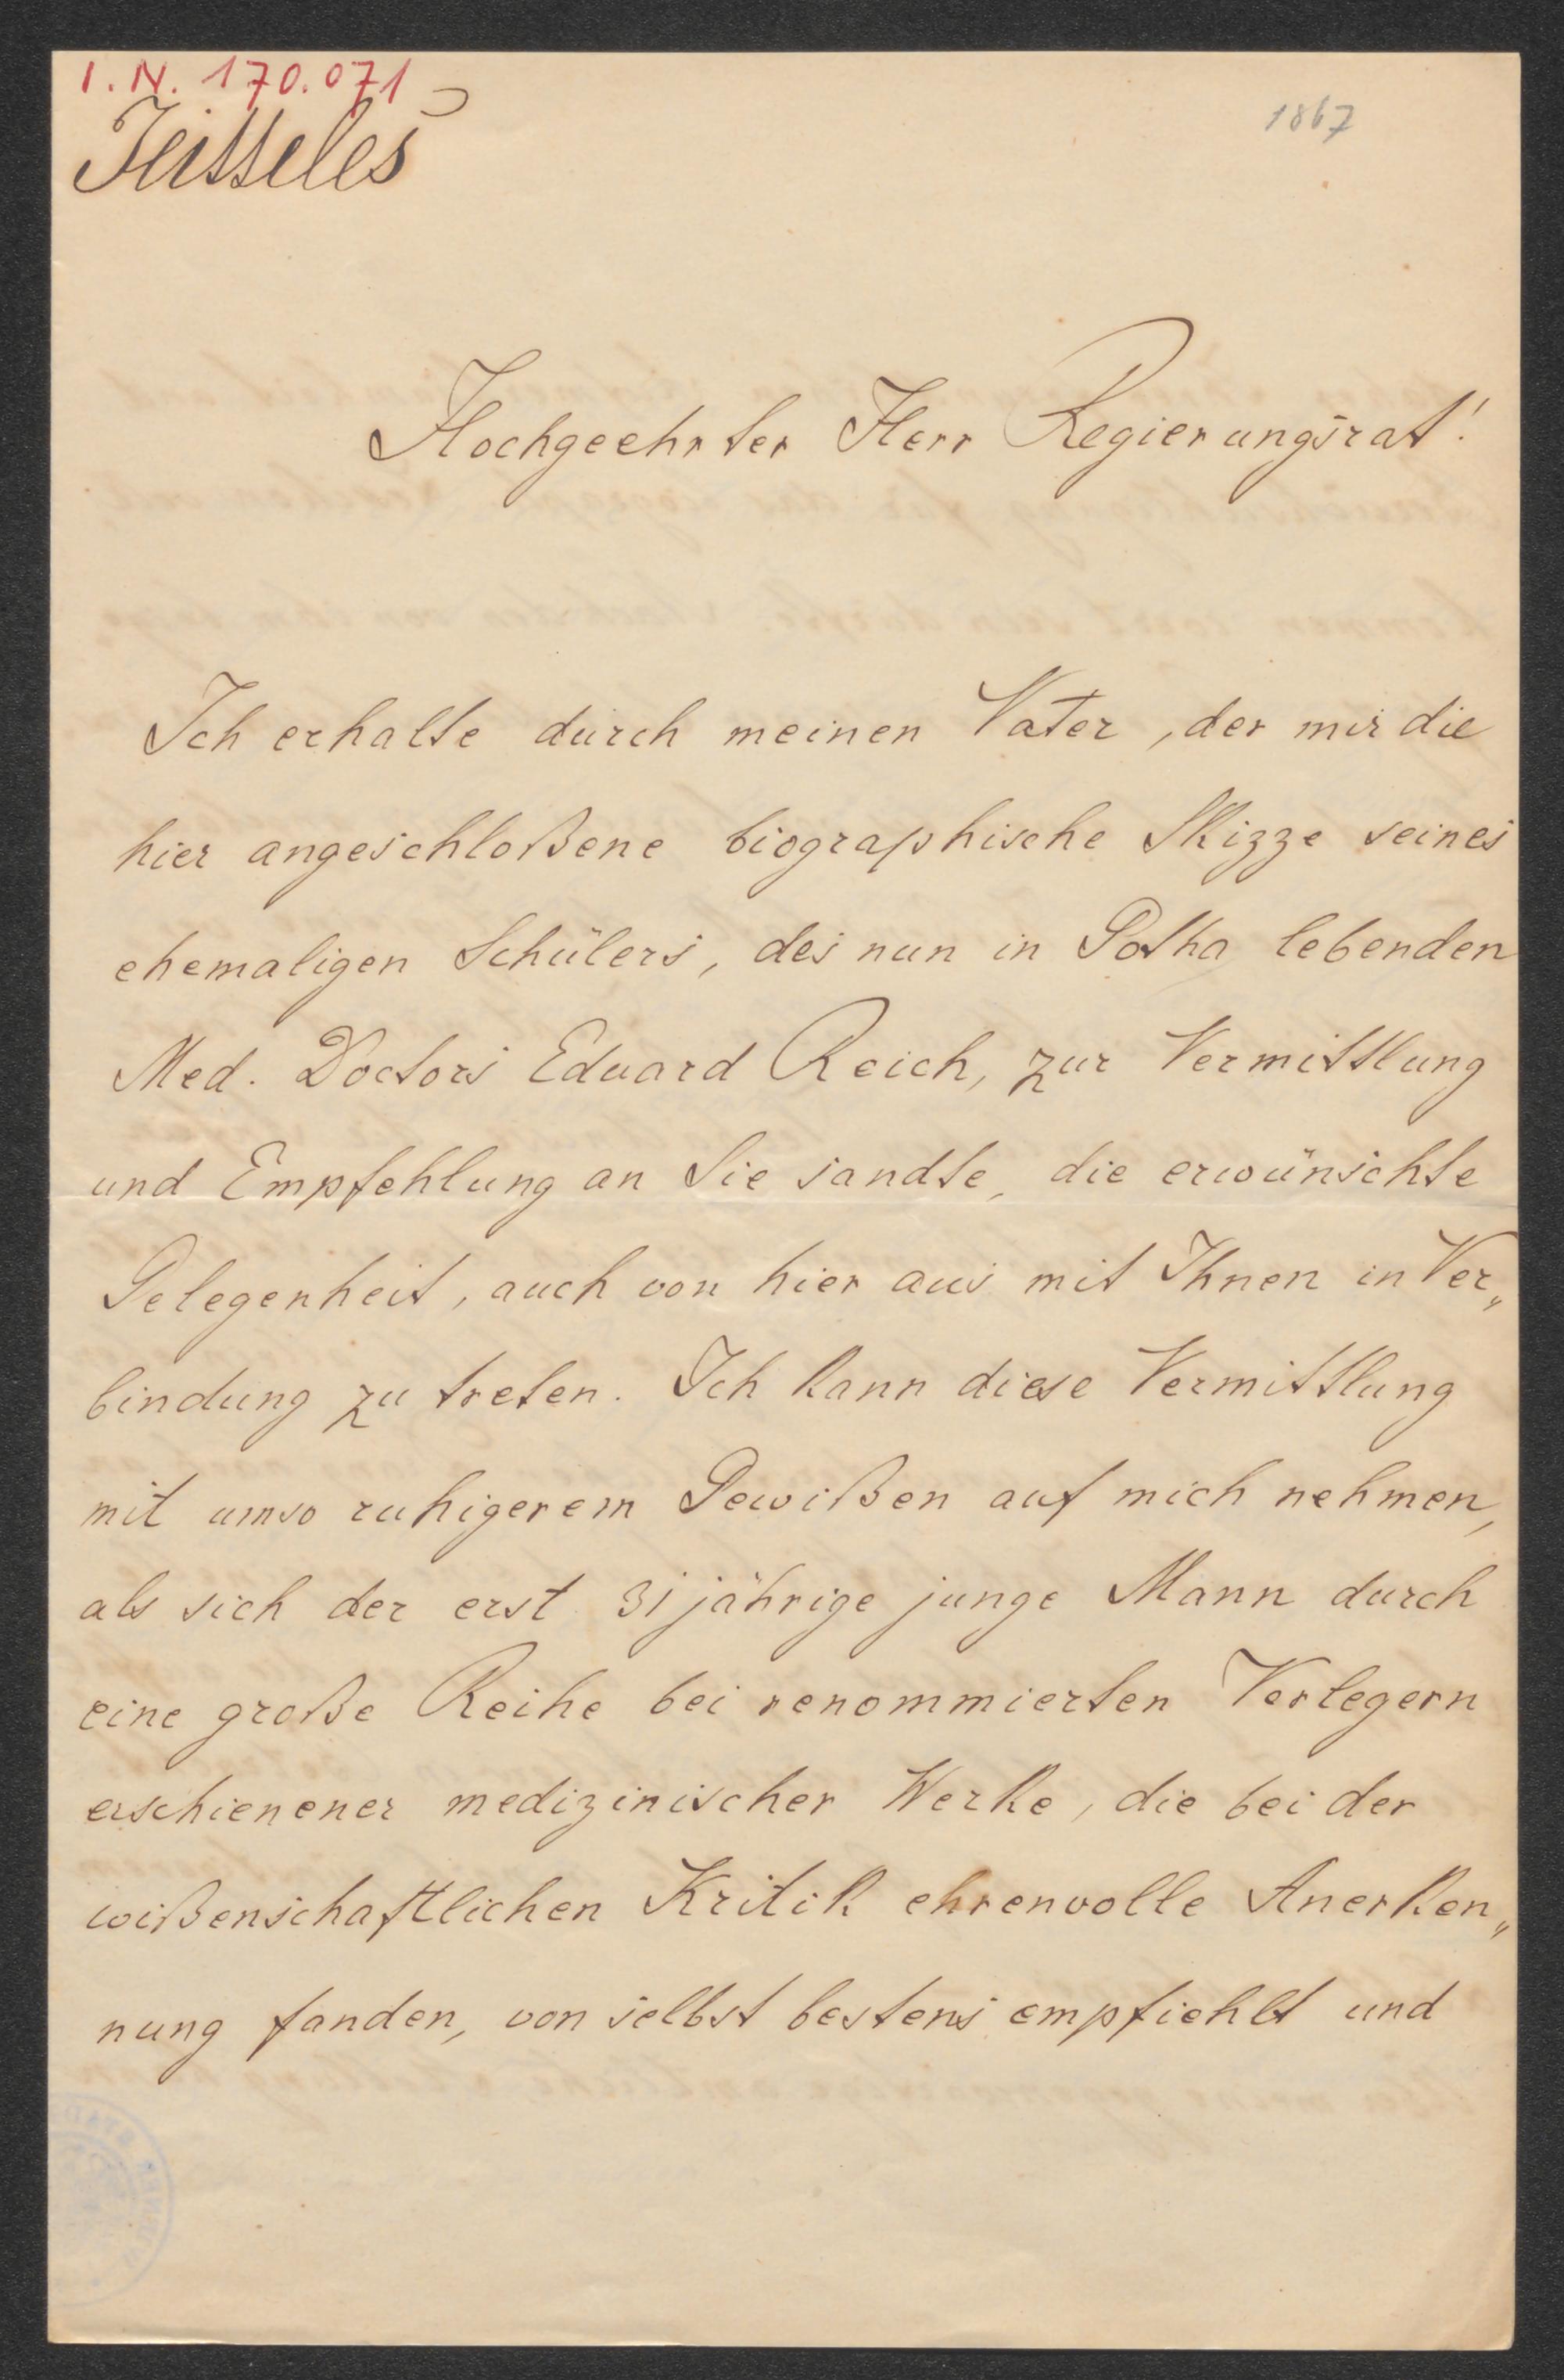 I.N. 170.071
Jeitteles
1867
Hochgeehrter Herr Regierungsrat!
Ich erhalte durch meinen Vater, der mir die
hier angeschloßene biographische Skizze seines
ehemaligen Schülers, des nun in Gotha lebenden
Med. Doctors Eduard Reich, zur Vermittlung
und Empfehlung an Sie sandte, die erwünschte
Gelegenheit, auch von hier aus mit Ihnen in Ver„
bindung zu treten. Ich kann diese Vermittlung
mit umso ruhigerem Gewißen auf mich nehmen,
als sich der erst 31jährige junge Mann durch
eine große Reihe bei renommierten Verlegern
erschienener medizinischer Werke, die bei der
wißenschaftlichen Kritik ehrenvolle Anerken„
nung fanden, von selbst bestens empfiehlt und